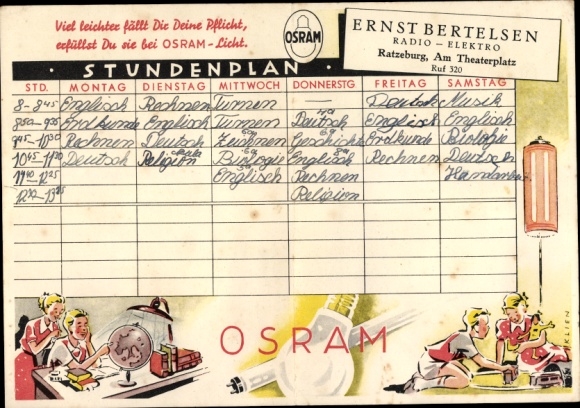 Viel leichter fällt Dir Deine Pflicht,
erfüllst Du sie bei OSRAM-Licht.
OSRAM
ERNST BERTELSEN
RADIO – ELEKTRO
Ratzeburg, Am Theaterplatz
Ruf 320
· STUNDENPLAN ·
STD. MONTAG DIENSTAG MITTWOCH DONNERSTG FREITAG SAMSTAG
8-8 45 Englisch Rechnen Turnen — Deutsch Musik
8 50-9 35 Erdkunde Englisch Turnen Deutsch Englisch Englisch
9 45-10 30 Rechnen Deutsch Zeichnen Geschichte Erdkunde Biologie
10 45-11 30 Deutsch Religion Biologie Englisch Rechnen Deutsch
11 40-12 25 Englisch Rechnen Handarbeit
Religion
OSRAM